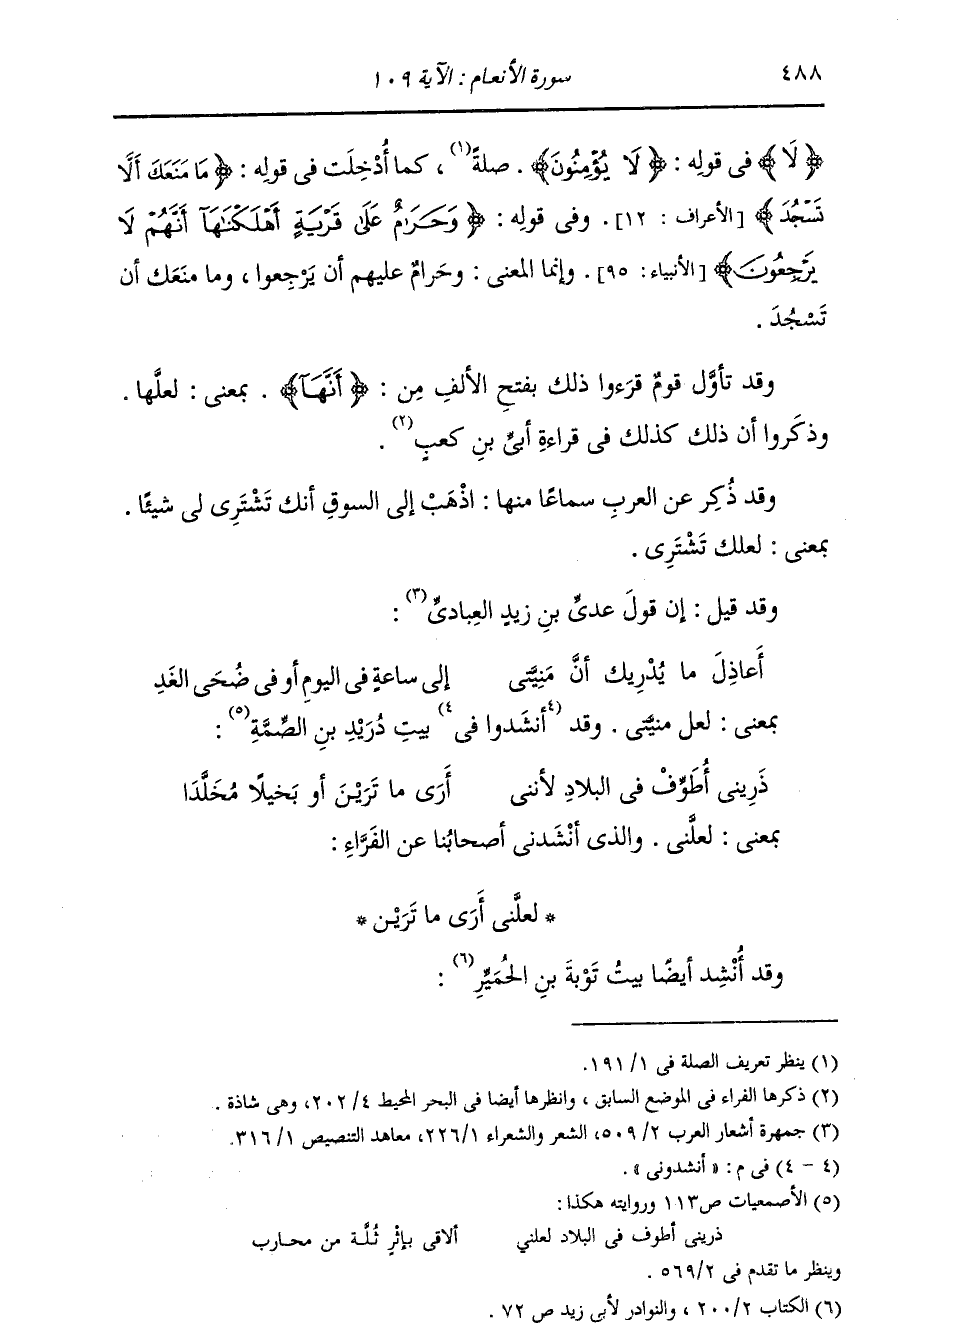 ٤٨٨
سورة الأنعام : الآية ١٠٩
﴿ لَا ﴾ فى قولِه : ﴿ لَا يُؤْمِنُونَ ﴾ . صلةً(١) ، كما أُدْخِلَت فى قولِه : ﴿ مَا مَنَعَكَ أَلَّا
تَسْجُدَ ﴾ [الأعراف : ١٢] . وفى قولِه : ﴿ وَحَرَامٌ عَلَىٰ قَرْيَةٍ أَهْلَكْنَاهَا أَنَّهُمْ لَا
يَرْجِعُونَ ﴾ [الأنبياء : ٩٥] . وإنما المعنى : وحَرامٌ عليهم أن يَرْجِعوا ، وما منَعَك أن
تَسْجُدَ .
وقد تأوَّل قومٌ قرَءوا ذلك بفتحِ الألفِ مِن : ﴿ أَنَّهَآ ﴾ . بمعنى : لعلَّها .
وذكَروا أن ذلك كذلك فى قراءةِ أبىِّ بنِ كعبٍ(٢) .
وقد ذُكِر عن العربِ سماعًا منها : اذْهَبْ إلى السوقِ أنك تَشْتَرِى لى شيئًا .
بمعنى : لعلك تَشْتَرِى .
وقد قيل : إن قولَ عدىِّ بنِ زيدٍ العِبادىِّ(٣) :
أَعاذِلَ ما يُدْرِيك أنَّ مَنِيَّتى إلى ساعةٍ فى اليومِ أو فى ضُحَى الغَدِ
بمعنى : لعل منيَّتى . وقد (٤أنشَدوا فى٤) بيتِ دُرَيْدِ بنِ الصِّمَّةِ(٥) :
ذَرِينى أُطَوِّفْ فى البلادِ لأننى أَرَى ما تَرَيْنَ أو بَخيلًا مُخَلَّدَا
بمعنى : لعلَّنى . والذى أنْشَدنى أصحابُنا عن الفَرَّاءِ :
* لعلَّنى أَرَى ما تَرَيْن *
وقد أُنْشِد أيضًا بيتُ تَوْبةَ بنِ الحُمَيِّرِ(٦) :
(١) ينظر تعريف الصلة فى ١/ ١٩١.
(٢) ذكرها الفراء فى الموضع السابق ، وانظرها أيضا فى البحر المحيط ٤/ ٢٠٢، وهى شاذة .
(٣) جمهرة أشعار العرب ٢/ ٥٠٩، الشعر والشعراء ١/ ٢٢٦، معاهد التنصيص ١/ ٣١٦.
(٤ - ٤) فى م : « أنشدونى » .
(٥) الأصمعيات ص١١٣ وروايته هكذا :
ذرينى أطوف فى البلاد لعلني ألاقى بإثْرِ ثُلَّة من محارب
وينظر ما تقدم فى ٢/ ٥٦٩ .
(٦) الكتاب ٢/ ٢٠٠ ، والنوادر لأبى زيد ص ٧٢ .